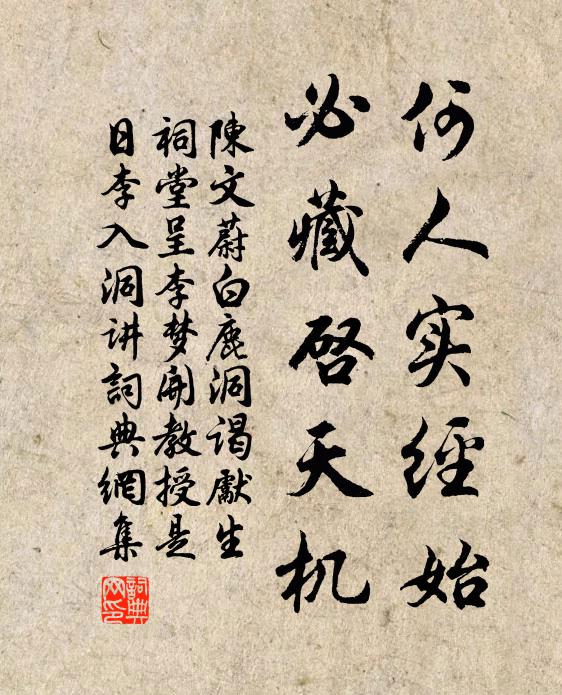 何人实經始
必藏啓天机
陳文蔚白鹿洞谒獻生
祠堂呈李梦開教授是
日李入洞讲詞典網集
詞典
网印